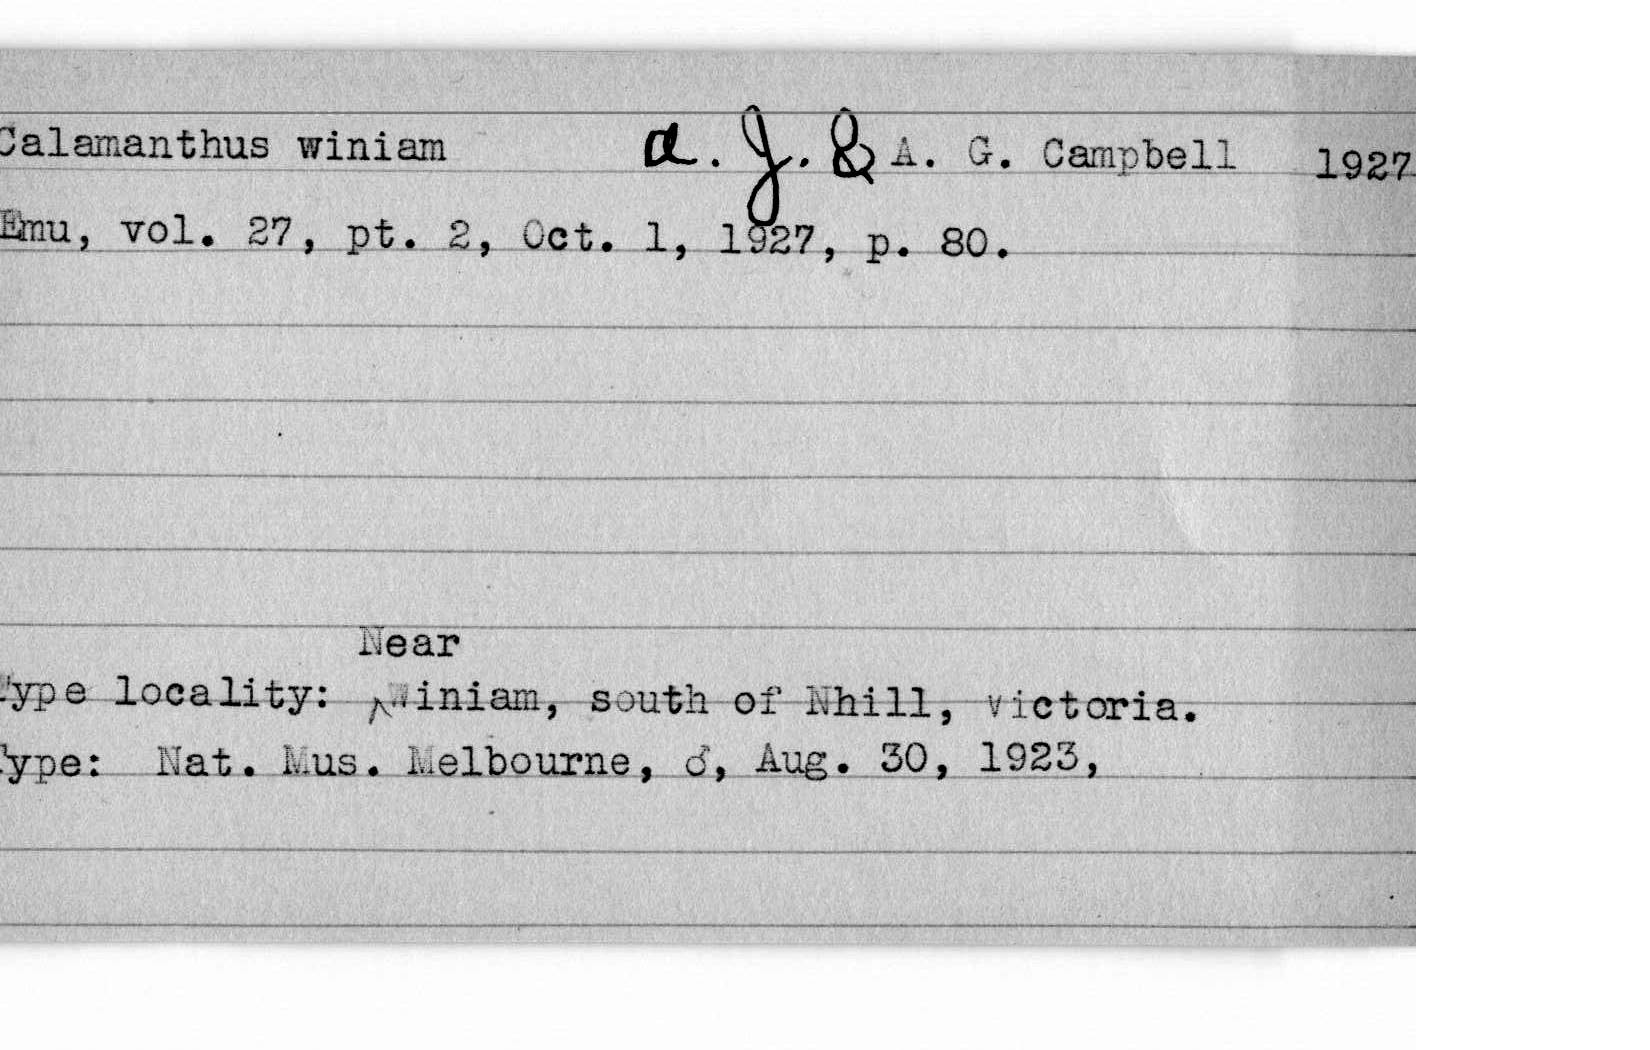 Calamanthus winiam a. J. & A. G. Campbell 1927
Emu, vol. 27, pt. 2, Oct. 1, 1927, p. 80.
Near
Type locality: ^Winiam, south of Nhill, Victoria.
Type: Nat. Mus. Melbourne, ♂, Aug. 30, 1923,